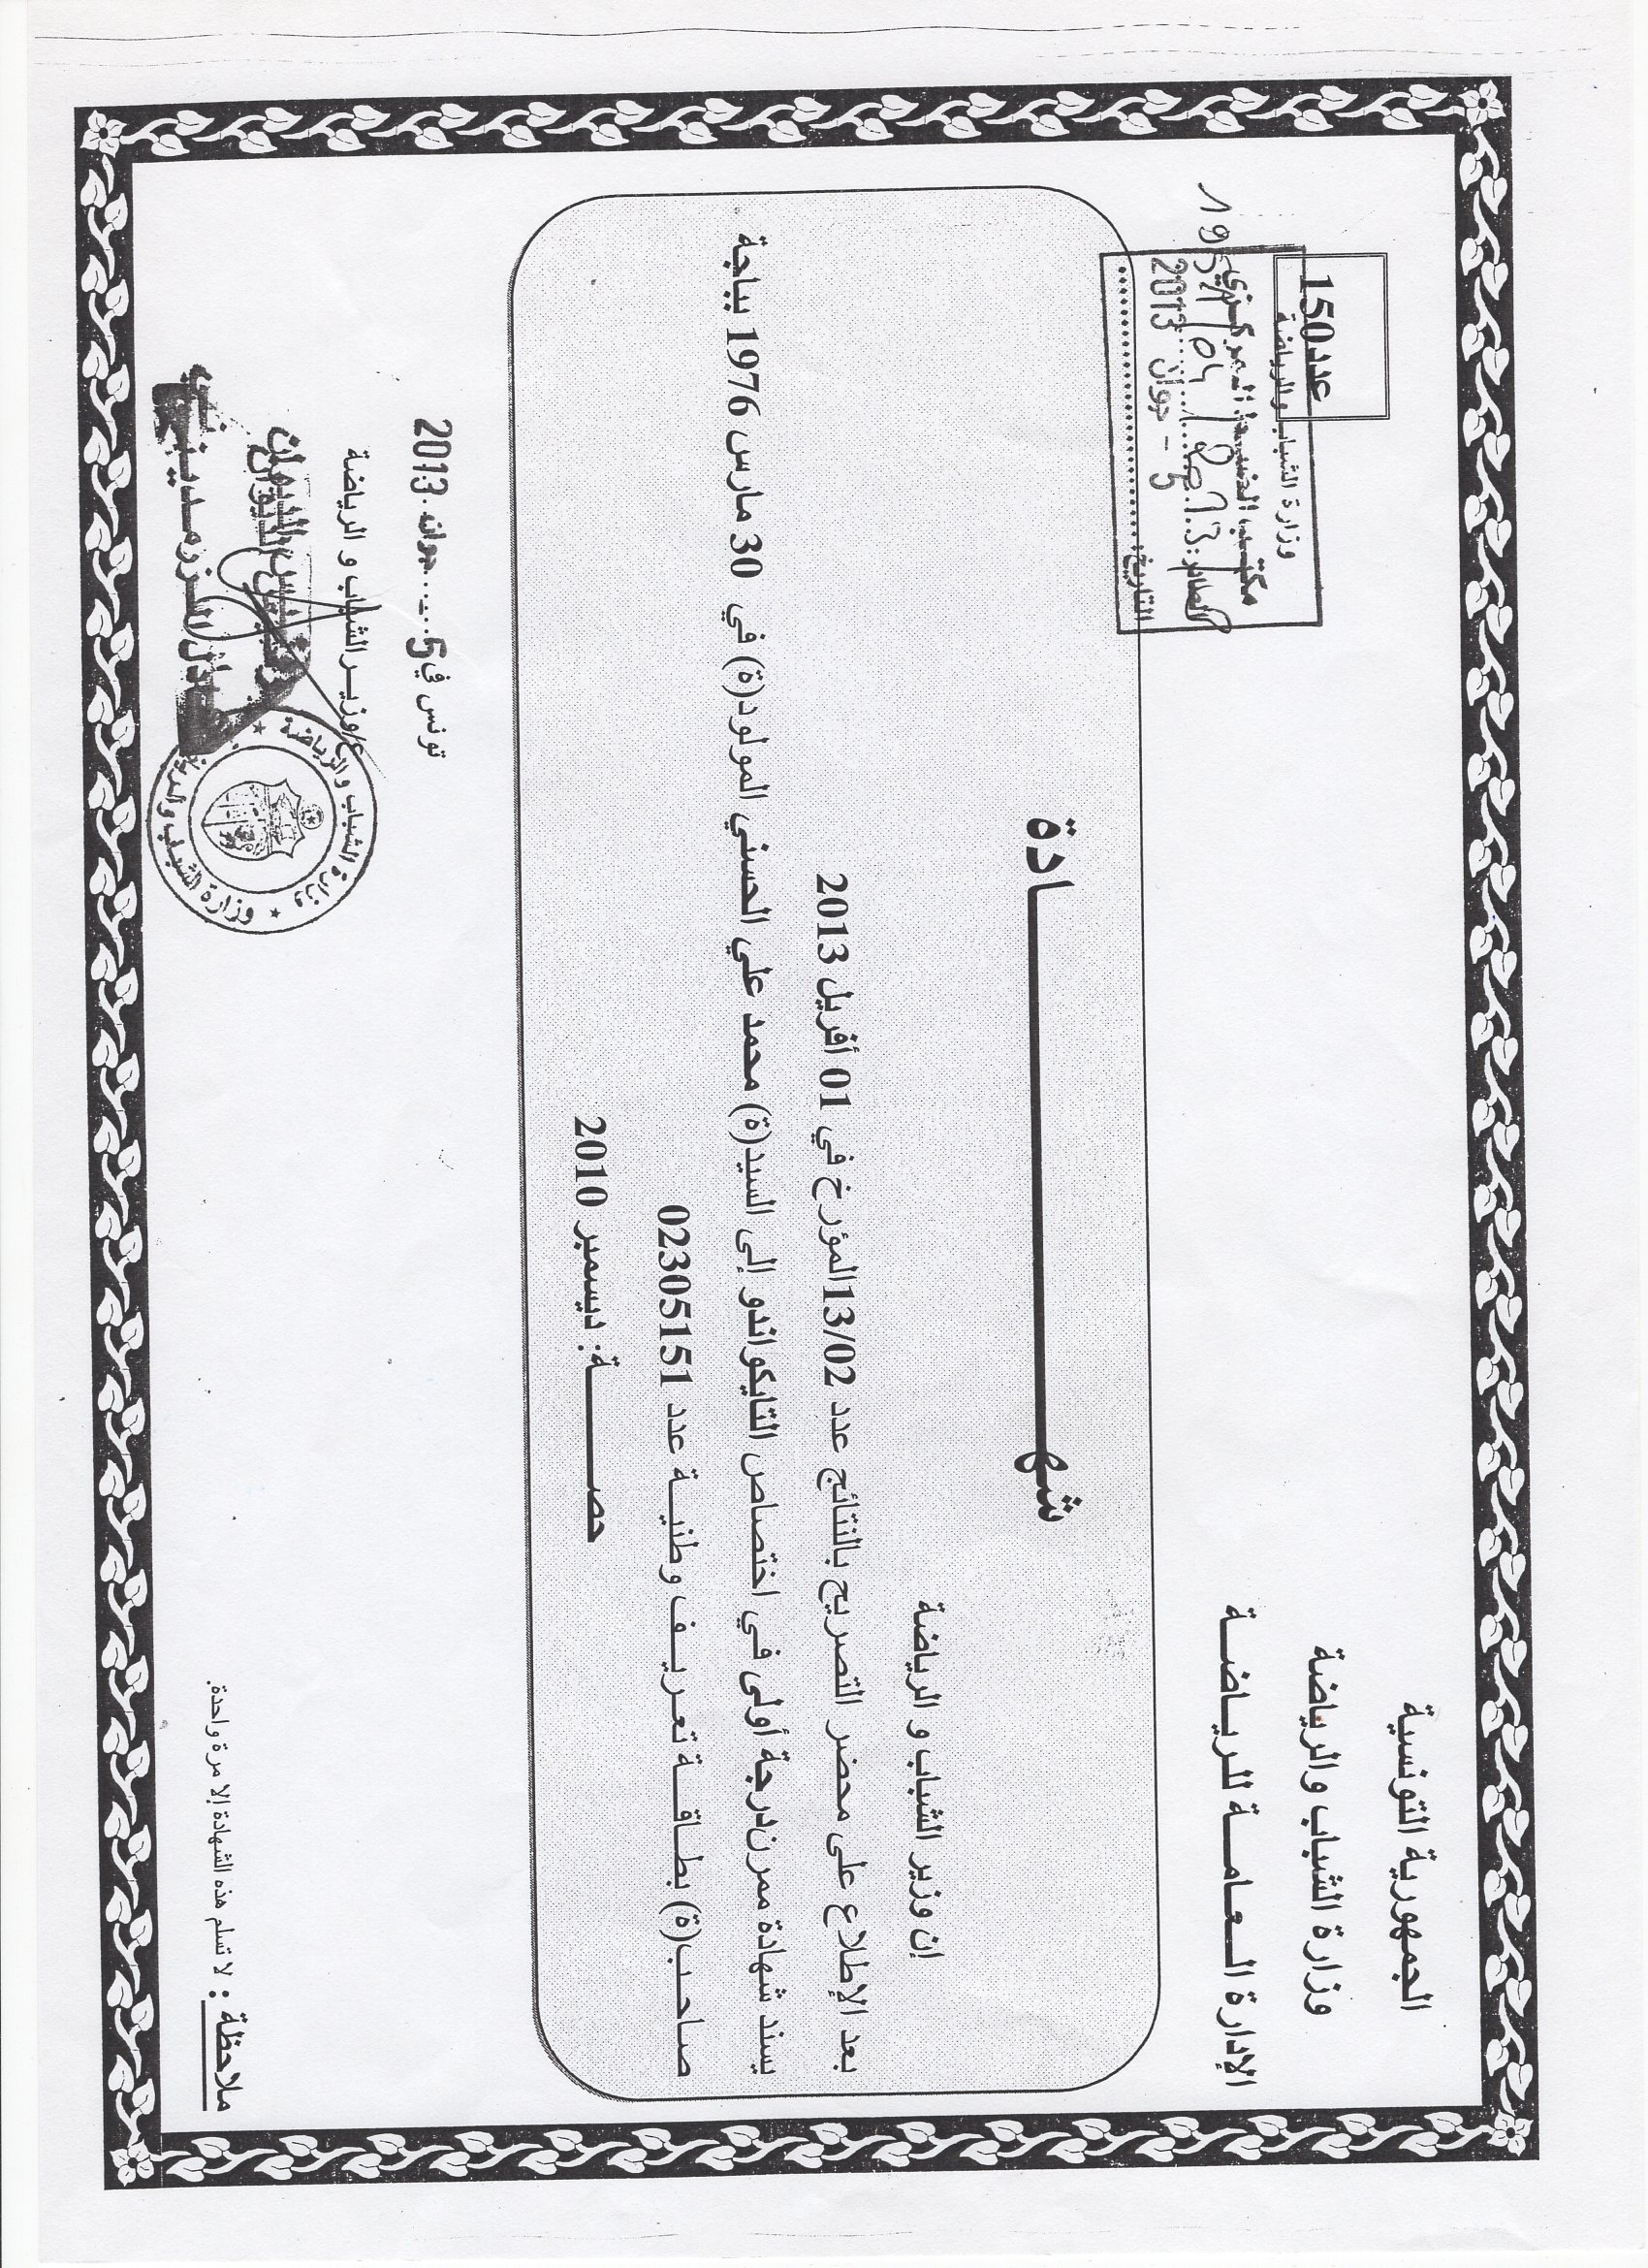 الجمهورية التونسية
وزارة الشباب والرياضة
الإدارة الـعـامــة للريـاضــة
عدد150
وزارة الشباب و الرياضة
مكتب الضبط المركزي
الصادر:
5 - جوان 2013
التاريخ:
شهــــــــــادة
إن وزير الشباب و الرياضة
بعد الإطلاع على محضر التصريح بالنتائج عدد 13/02المؤرخ في 01 أفريل 2013
يسند شهادة ممرن درجة أولى في اختصاص التايكواندو إلى السيد(ة) محمد علي الحسني المولود(ة) في 30 مارس 1976 بباجة
صاحـب(ة) بطـاقــة تعـريــف وطنيــة عدد 02305151
حصـــــــة: ديسمبر 2010
تونس في 5 - جوان 2013
ع/وزيـر الشباب و الرياضة
وزارة الشباب و الرياضة
ملاحظة : لا تسلم هذه الشهادة إلا مرة واحدة.